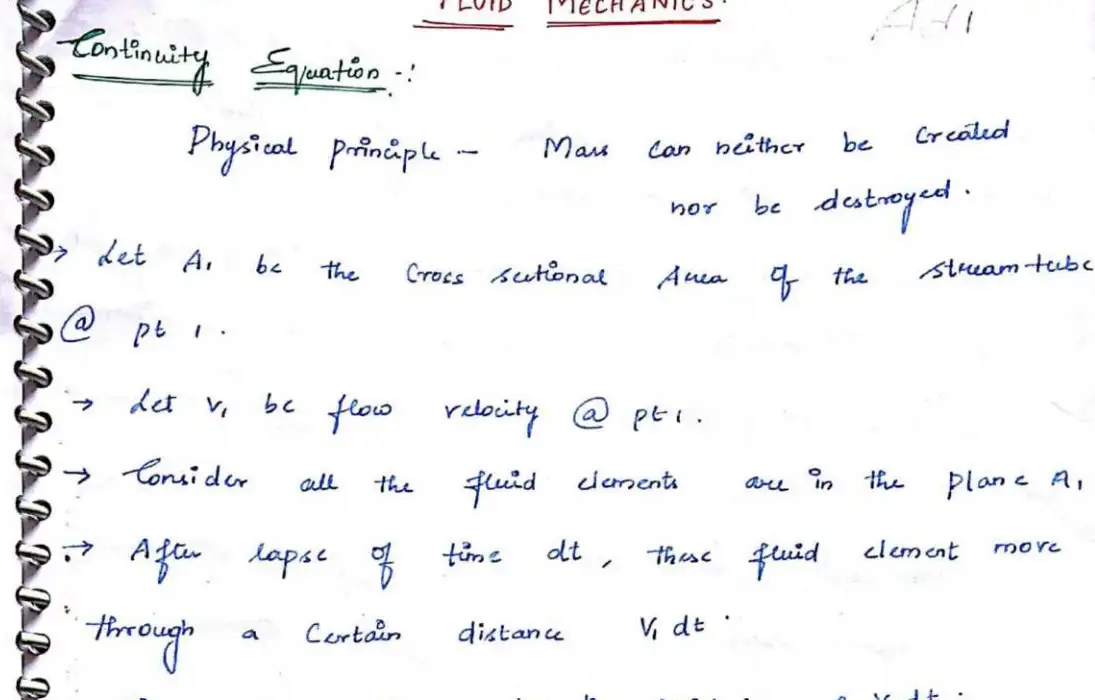 FLUID MECHANICS.
Continuity Equation -:
Physical principle - Mass can neither be created
nor be destroyed.
→ Let A₁ be the Cross sectional Area of the stream-tube
@ pt 1.
→ Let V₁ be flow velocity @ pt 1.
→ Consider all the fluid elements are in the plane A₁
→ After lapse of time dt, these fluid element move
through a Certain distance V₁ dt.